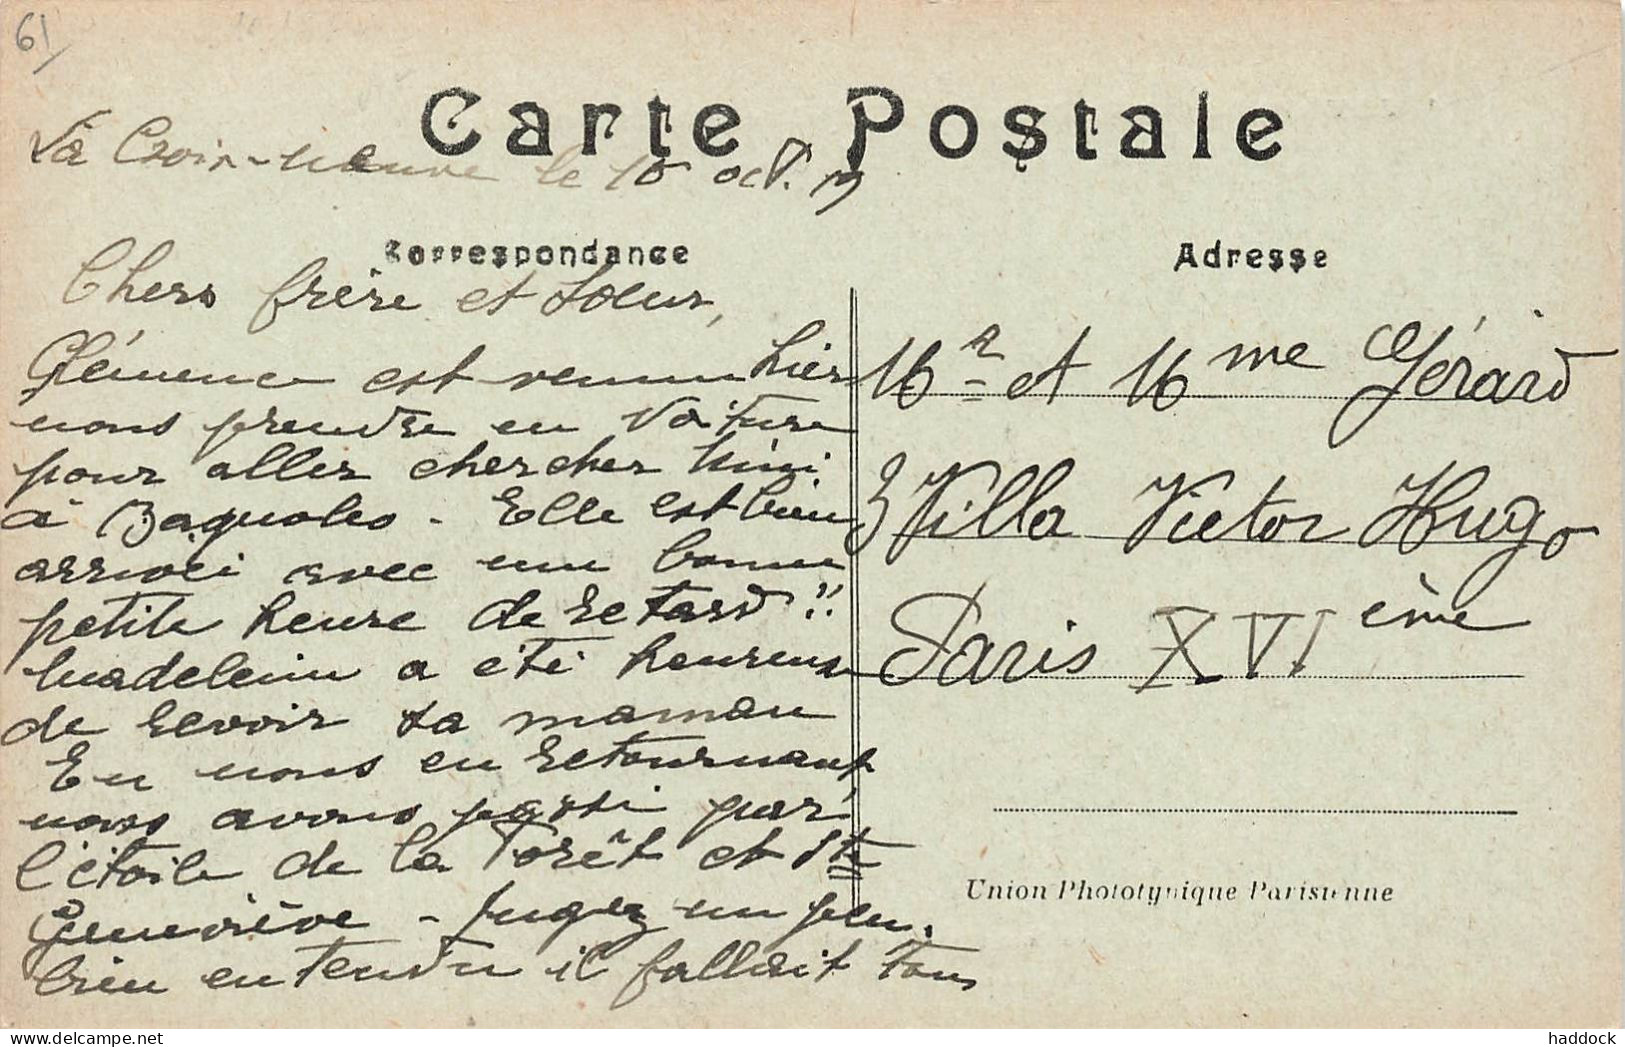 61
Carte Postale
La Croix-neuve le 10 oct. 
Correspondance
Chers frère et Soeur,
Clémence est venue hier
nous prendre en voiture
pour aller chercher Mimi
à Bagnoles. Elle est bien
arrivée avec une bonne
petite heure de retard !!
Madeleine a été heureuse
de revoir sa maman
En nous en retournant
nous avons passé par
l'étoile de la Forêt et Ste
Geneviève - Jugez un peu.
bien entendu il fallait tous
Adresse
Mr et Mme Gérard
3 Villa Victor Hugo
Paris XVI ème
Union Phototypique Parisienne
haddock